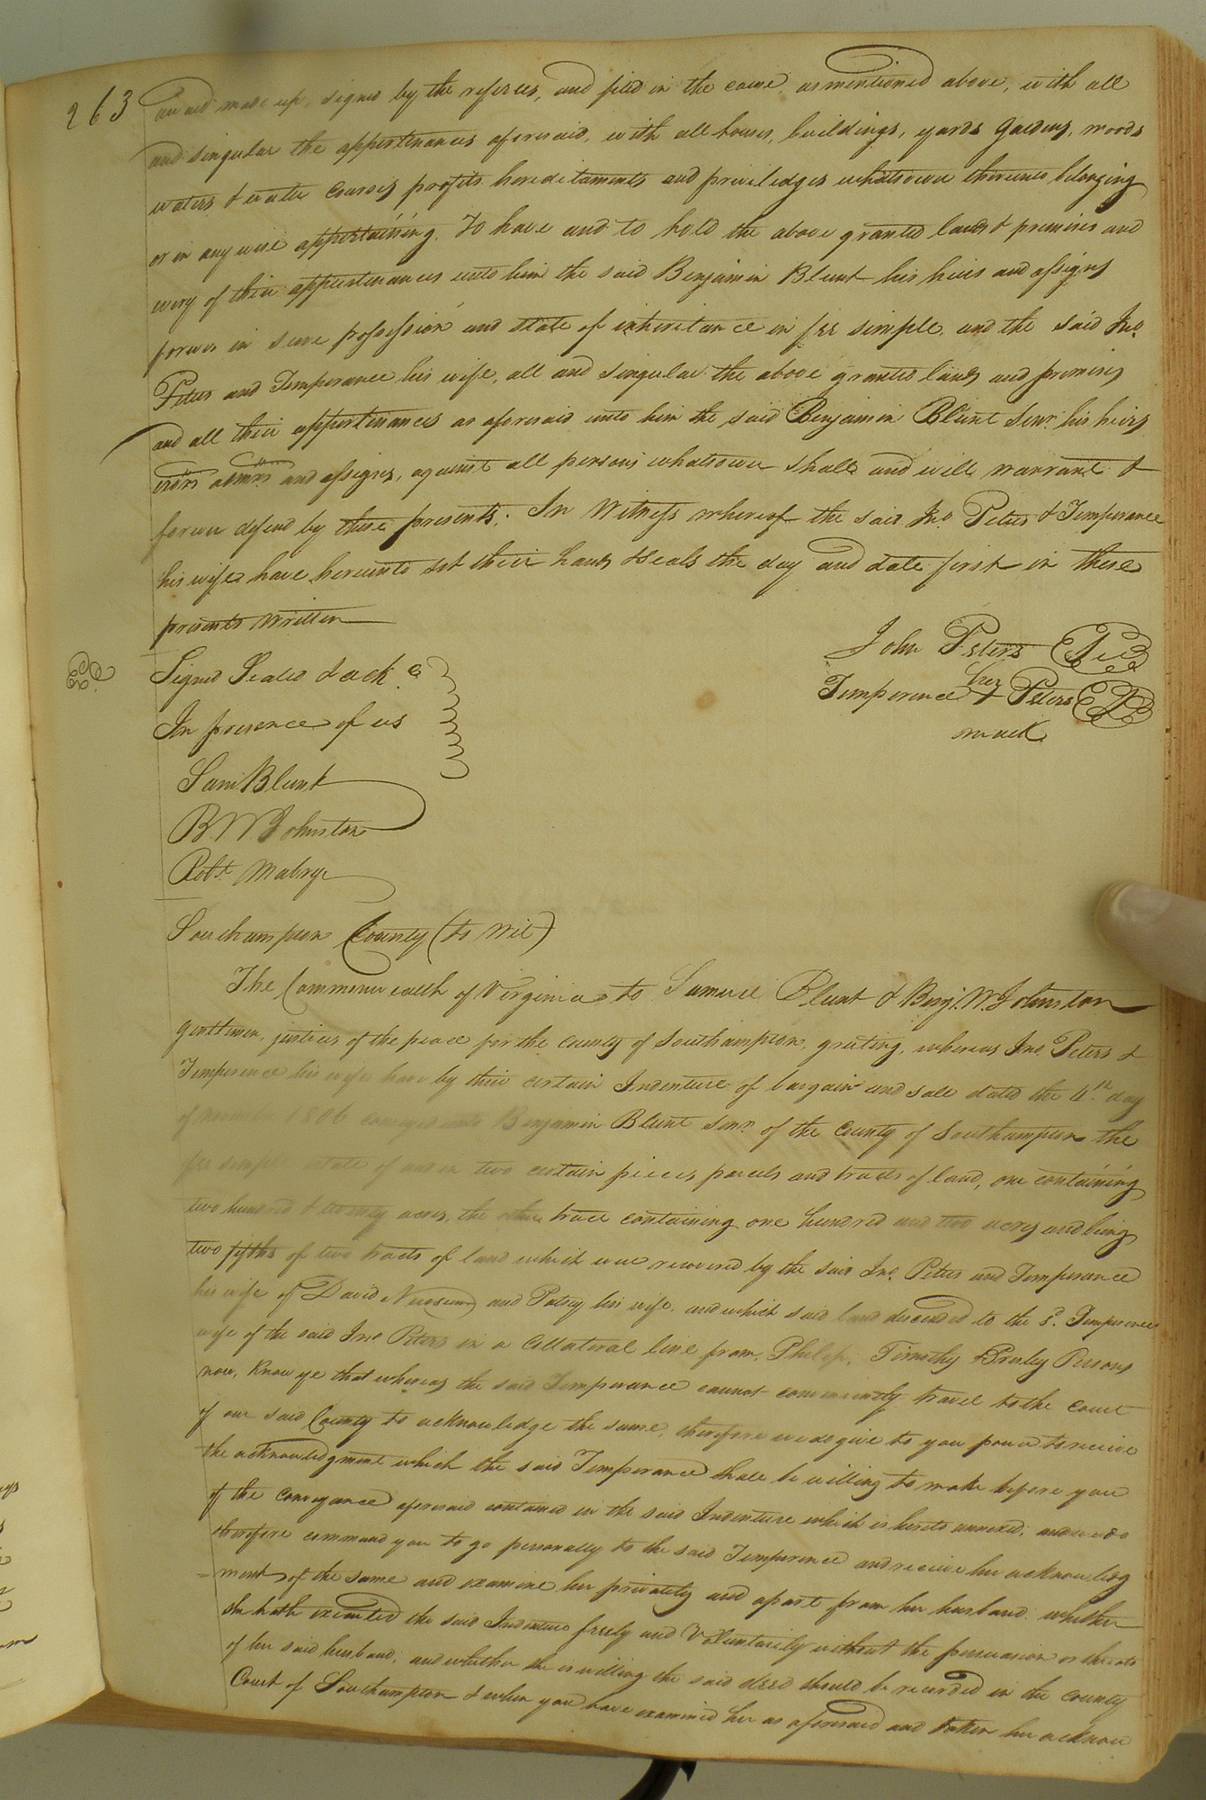 263
award made up, signed by the referees, and filed in the cause as mentioned above, with all
and singular the appertenances aforesaid, with all houses, buildings, yards Gardens, woods
waters & water courses profits hereditaments and priviledges whatsoever thereunto belonging
or in any wise appertaining. To have and to hold the above granted lands & premises and
every of their appertenances unto him the said Benjamin Blunt his heirs and assigns
forever in sure possession and state of inheritance in fee simple, and the said Jno.
Peters and Temperance his wife, all and singular the above granted lands and premises
and all their appertenances as aforesaid unto him the said Benjamin Blunt Senr. his heirs
exors admrs and assigns, against all persons whatsoever shall and will warrant &
forever defend by these presents. In Witness whereof the said Jno Peters & Temperance
his wife have hereunto set their hands & seals the day and date first in these
presents written
John Peters
Signed Sealed & ack
her
Temperence + Peters
mark
In presence of us
Sam Blunt
B W Johnston
Robt. Mabry
Southampton County (to wit)
The Commonwealth of Virginia to Samuel Blunt & Benj. W. Johnston
Gentlemen, justices of the peace for the County of Southampton, greeting, whereas Jno. Peters &
Temperence his wife have by their certain Indenture of bargain and sale dated the 4th day
of 1806 conveyed unto Benjamin Blunt Senr. of the County of Southampton the
fee simple estate of and in two certain pieces parcels and tracts of land, one containing
two hundred & twenty acres, the other tract containing one hundred and two acres and being
two fifths of two tracts of land which were recovered by the said Jno. Peters and Temperance
his wife of David Newsum and Patsey his wife, and which said land descended to the sd. Temperence
wife of the said Jno Peters in a Collateral line from Philip, Timothy & Persons
now, Know ye that whereas the said Temperance cannot conveniently travel to the Court
of our said County to acknowledge the same, therefore we do give to you power to receive
the acknowledgment which the said Temperance shall be willing to make before you
of the conveyance aforesaid contained in the said Indenture which is hereto annexed, and we do
therefore command you to go personally to the said Temperence and receive her acknowledg
-ment of the same and examine her privately and apart from her husband whether
she hath executed the said Indenture freely and Voluntarily without the persuasion or threats
of her said husband, and whether she is willing the said deed should be recorded in the County
Court of Southampton & when you have examined her as aforesaid and taken her acknow